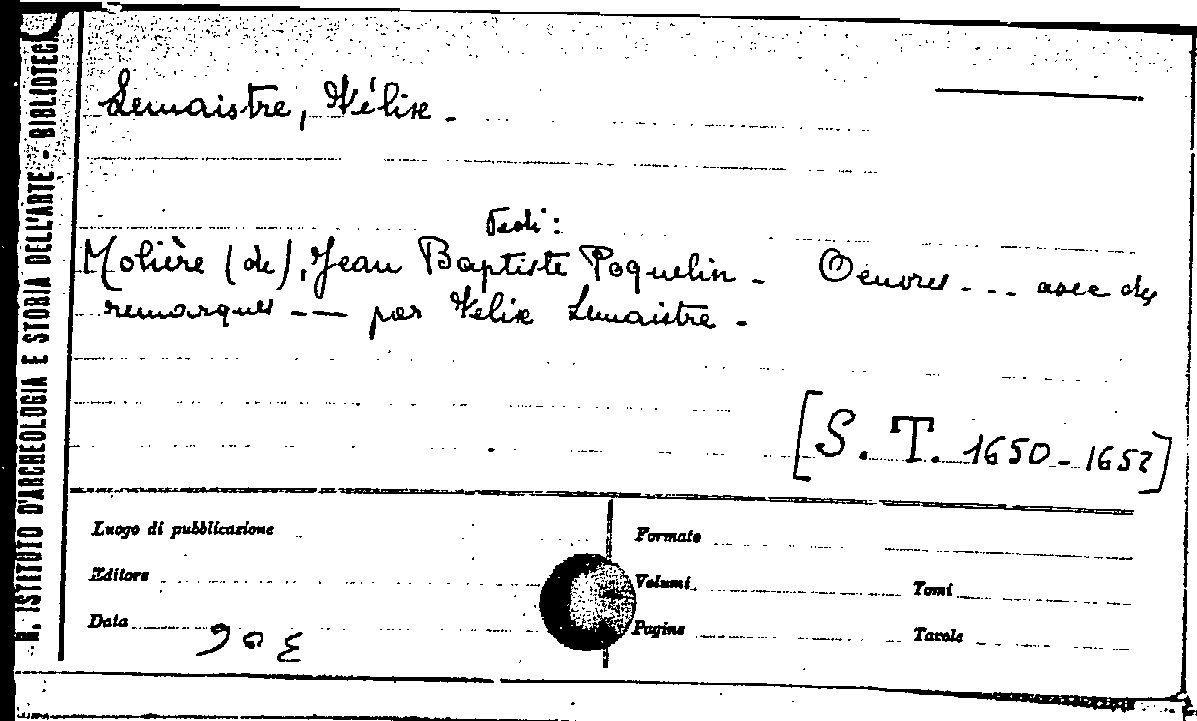 R. ISTITUTO D'ARCHEOLOGIA E STORIA DELL'ARTE - BIBLIOTECA
Lemaistre, Félix.
Vedi:
Molière (de), Jean Baptiste Poquelin - Oeuvres - - - avec des
remarques - - - par Félix Lemaistre -
[S. T. 1650-1652]
Luogo di pubblicazione
Formato
Editore
Volumi
Tomi
Data
Pagine
Tavole